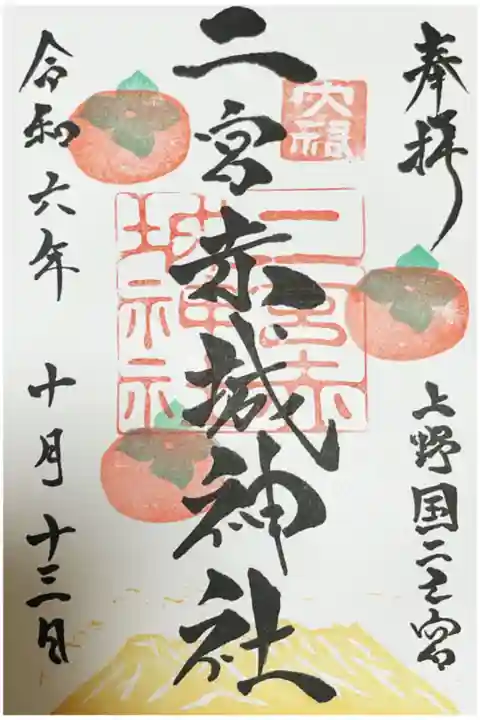 奉拝
上野国二之宮
大福
二宮赤城神社
二宮赤
城神社
令和六年 十月十三日